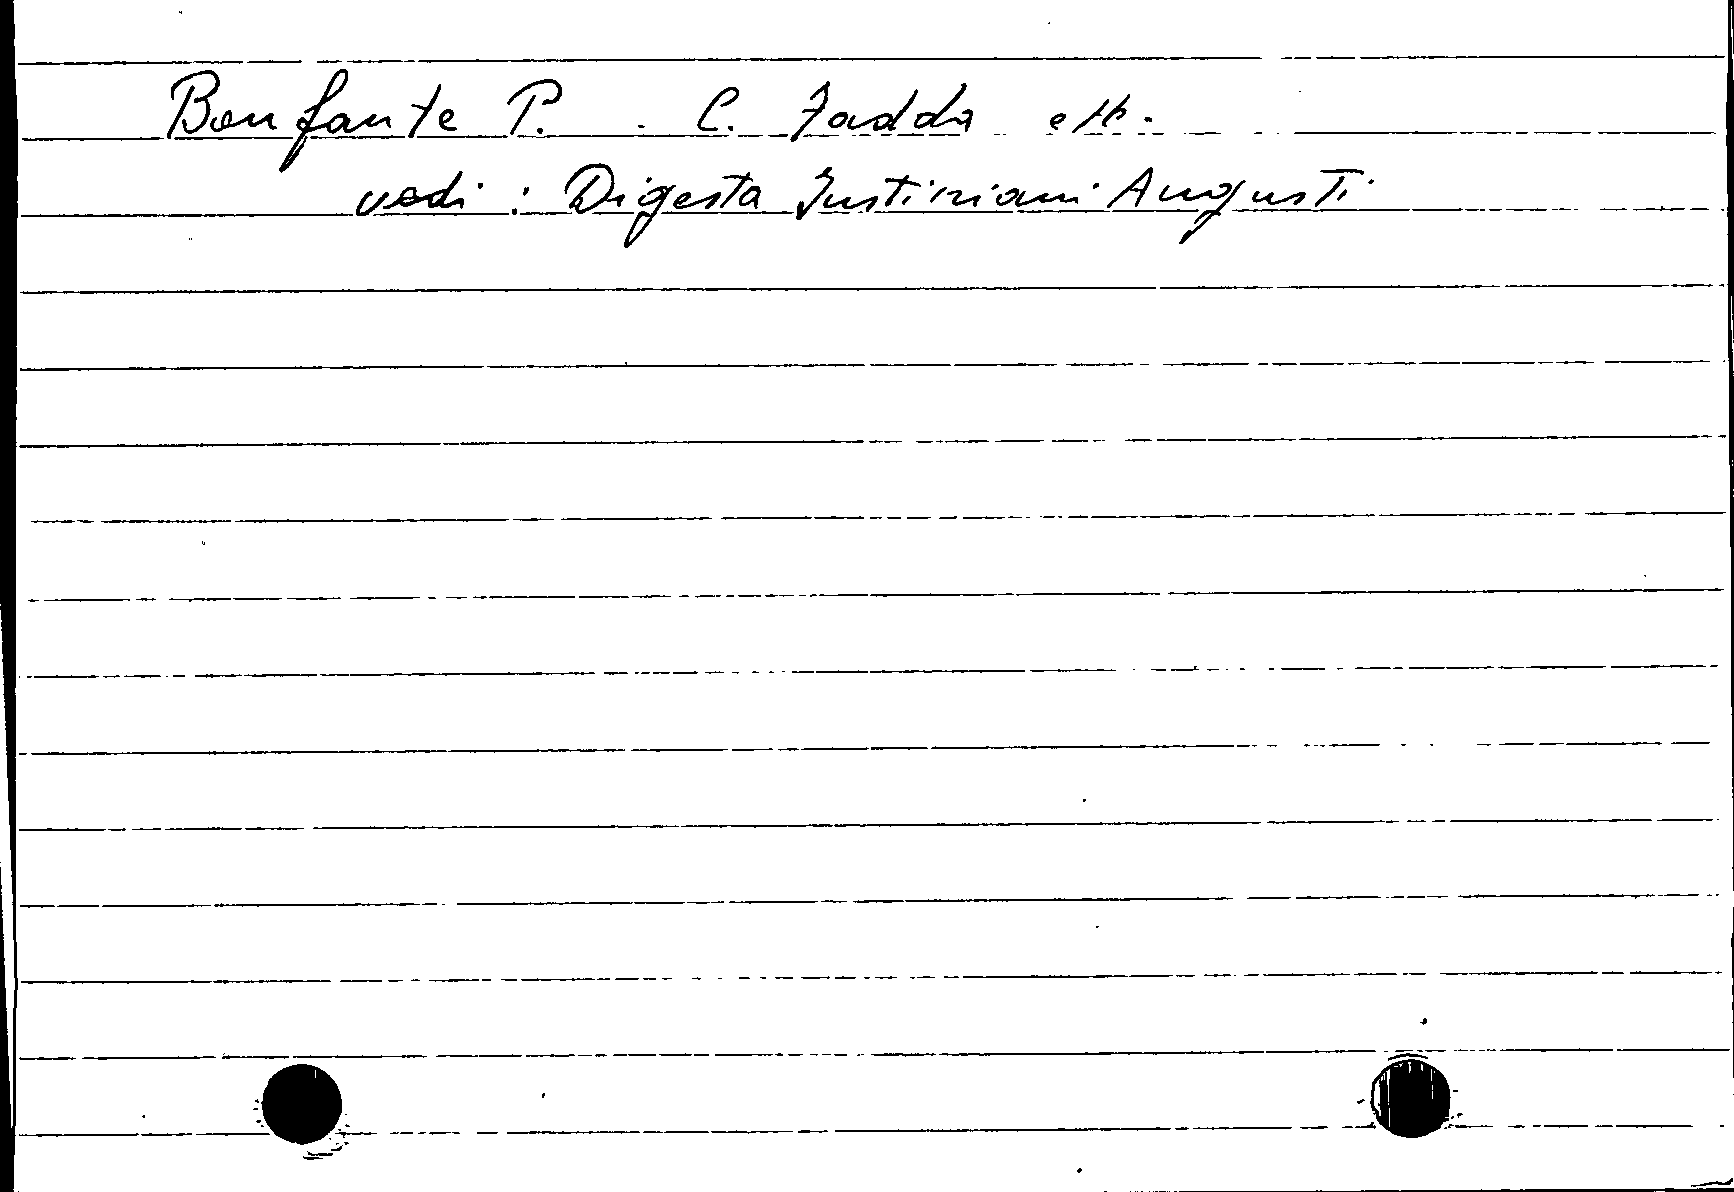 Bonfante P. - C. Fadda ett.
vedi : Digesta Iustiniani Augusti